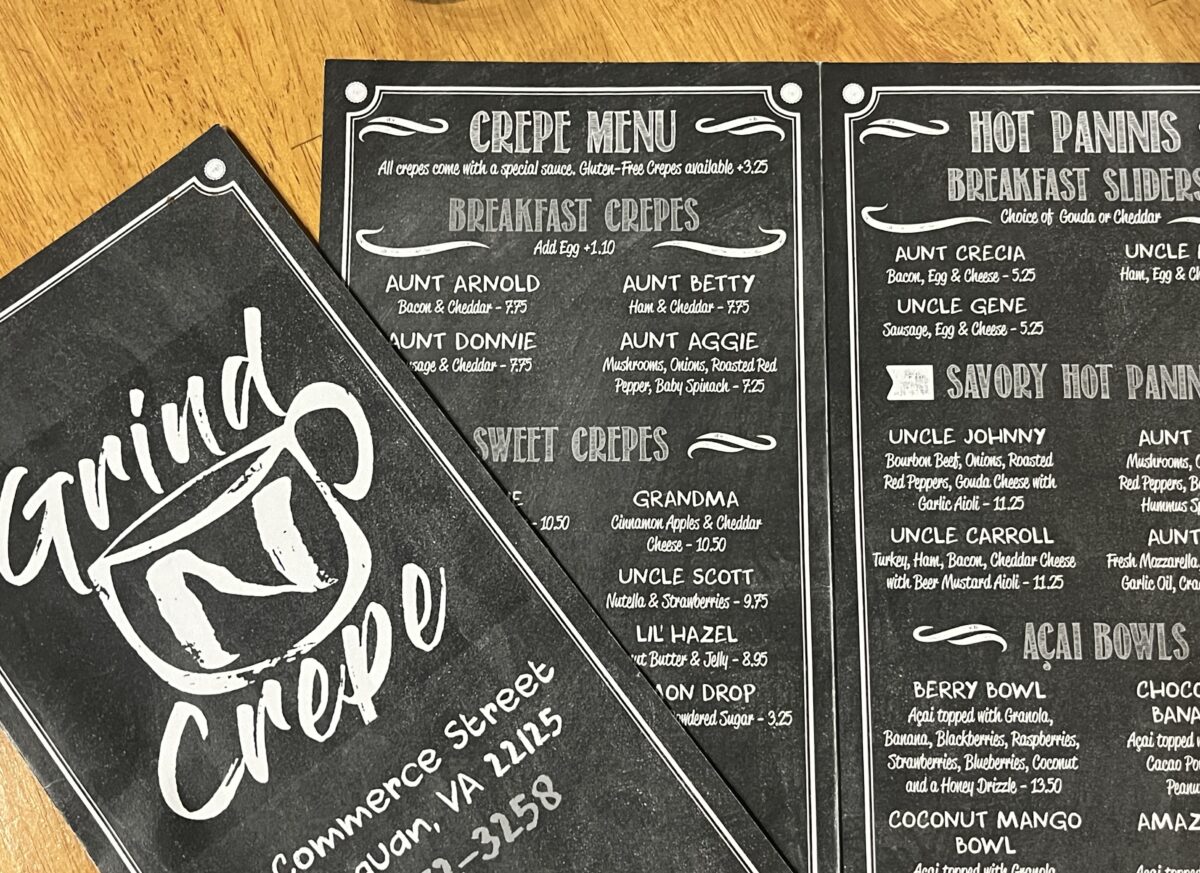 Grind
N
Crepe
Commerce Street
VA 22125
-3258
CREPE MENU
All crepes come with a special sauce. Gluten-Free Crepes available +3.25
BREAKFAST CREPES
Add Egg +1.10
AUNT ARNOLD
Bacon & Cheddar - 7.75
AUNT BETTY
Ham & Cheddar - 7.75
AUNT DONNIE
& Cheddar - 7.75
AUNT AGGIE
Mushrooms, Onions, Roasted Red
Pepper, Baby Spinach - 7.25
SWEET CREPES
- 10.50
GRANDMA
Cinnamon Apples & Cheddar
Cheese - 10.50
UNCLE SCOTT
Nutella & Strawberries - 9.75
LIL' HAZEL
Butter & Jelly - 8.95
DROP
Sugar - 3.25
HOT PANINIS
BREAKFAST SLIDERS
Choice of Gouda or Cheddar
AUNT CRECIA
Bacon, Egg & Cheese - 5.25
UNCLE
Ham, Egg &
UNCLE GENE
Sausage, Egg & Cheese - 5.25
SAVORY HOT
UNCLE JOHNNY
Bourbon Beef, Onions, Roasted
Red Peppers, Gouda Cheese with
Garlic Aioli - 11.25
AUNT
Mushrooms,
Red Peppers,
Hummus
UNCLE CARROLL
Turkey, Ham, Bacon, Cheddar Cheese
with Beer Mustard Aioli - 11.25
AUNT
Fresh Mozzarella,
Garlic Oil,
AÇAI BOWLS
BERRY BOWL
Açai topped with Granola,
Banana, Blackberries, Raspberries,
Strawberries, Blueberries, Coconut
and a Honey Drizzle - 13.50
Açai topped
Cacao
COCONUT MANGO
BOWL
Açai topped with Granola
Açai topped